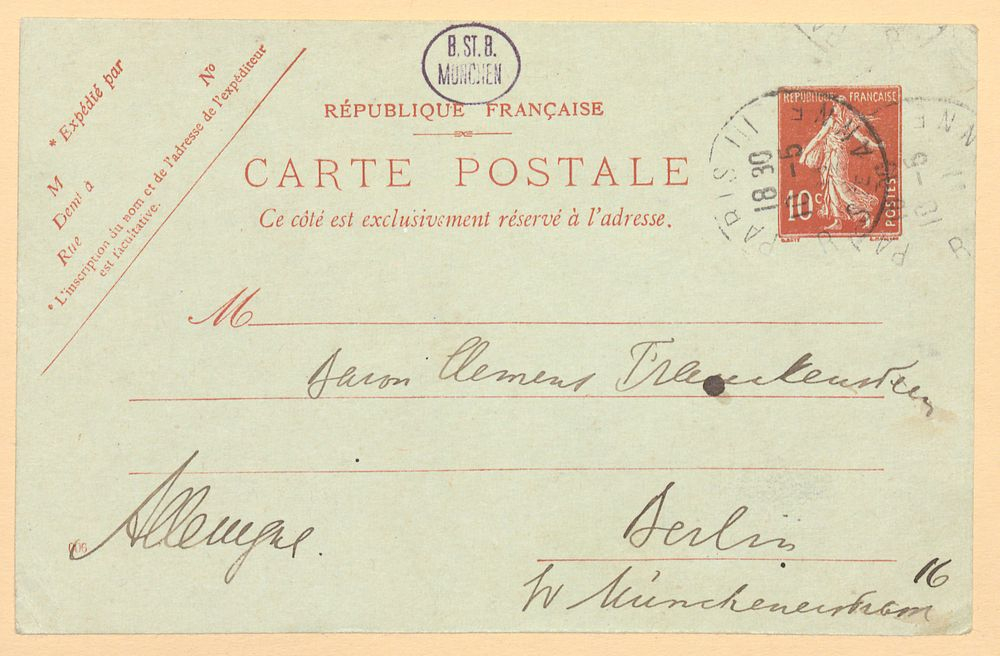 B. ST. B.
MÜNCHEN
RÉPUBLIQUE FRANÇAISE
CARTE POSTALE
Ce côté est exclusivement réservé à l'adresse.
* Expédié par
No
M
Demt à
Rue
* L'inscription du nom et de l'adresse de l'expéditeur
est facultative.
REPUBLIQUE FRANÇAISE
10 c
POSTES
PARIS III
18 30
M
Baron Clemens Franckenstein
Allemagne.
Berlin
16
W Münchenerstrasse
006